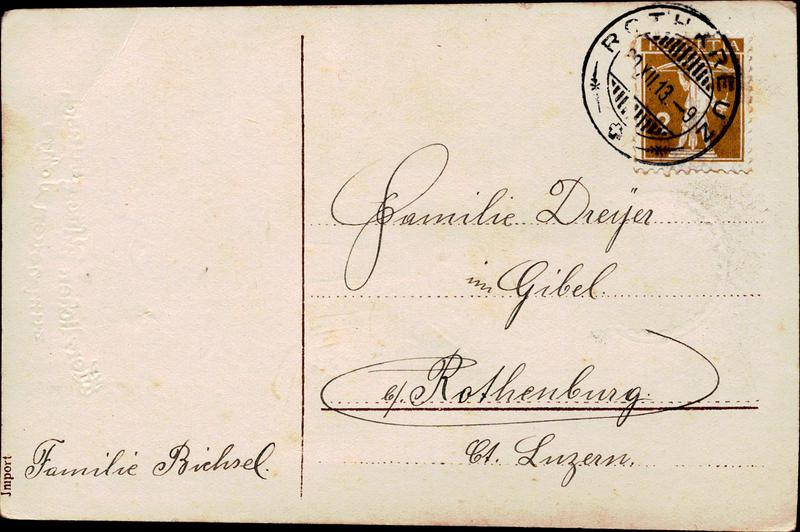 ROTHKREUZ
XII.13.-9
HELVETIA
2
Familie Dreÿer
im Gibel.
b/. Rothenburg.
Ct. Luzern.
Familie Bichsel.
Import